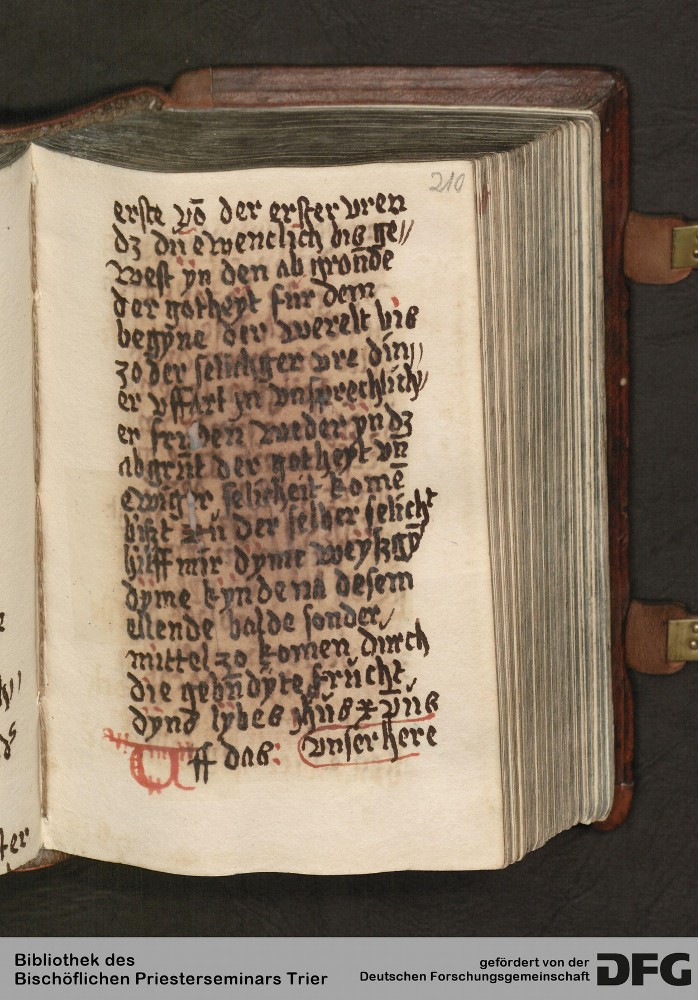 210
erste vō der erster vren
dz dū ewenclich bis ge//
west yn den ab gronde
der gotheyt fur dem
begyne der werelt bis
zo der selichger vre din//
er vffart yn vnsprechlich//
er fruden weder yn dz
abgrūt der gotheyt vn̄
ewiger selicheit komē
der selber selicht
hilff mir dyme
dyme kynde na desem
ellende balde sonder/
mittel zo komen durch
die gebn̄dyte frucht/
dynes lybes jhūs
Uff das: vnser here
Bibliothek des
Bischöflichen Priesterseminars Trier
gefördert von der
Deutschen Forschungsgemeinschaft
DFG